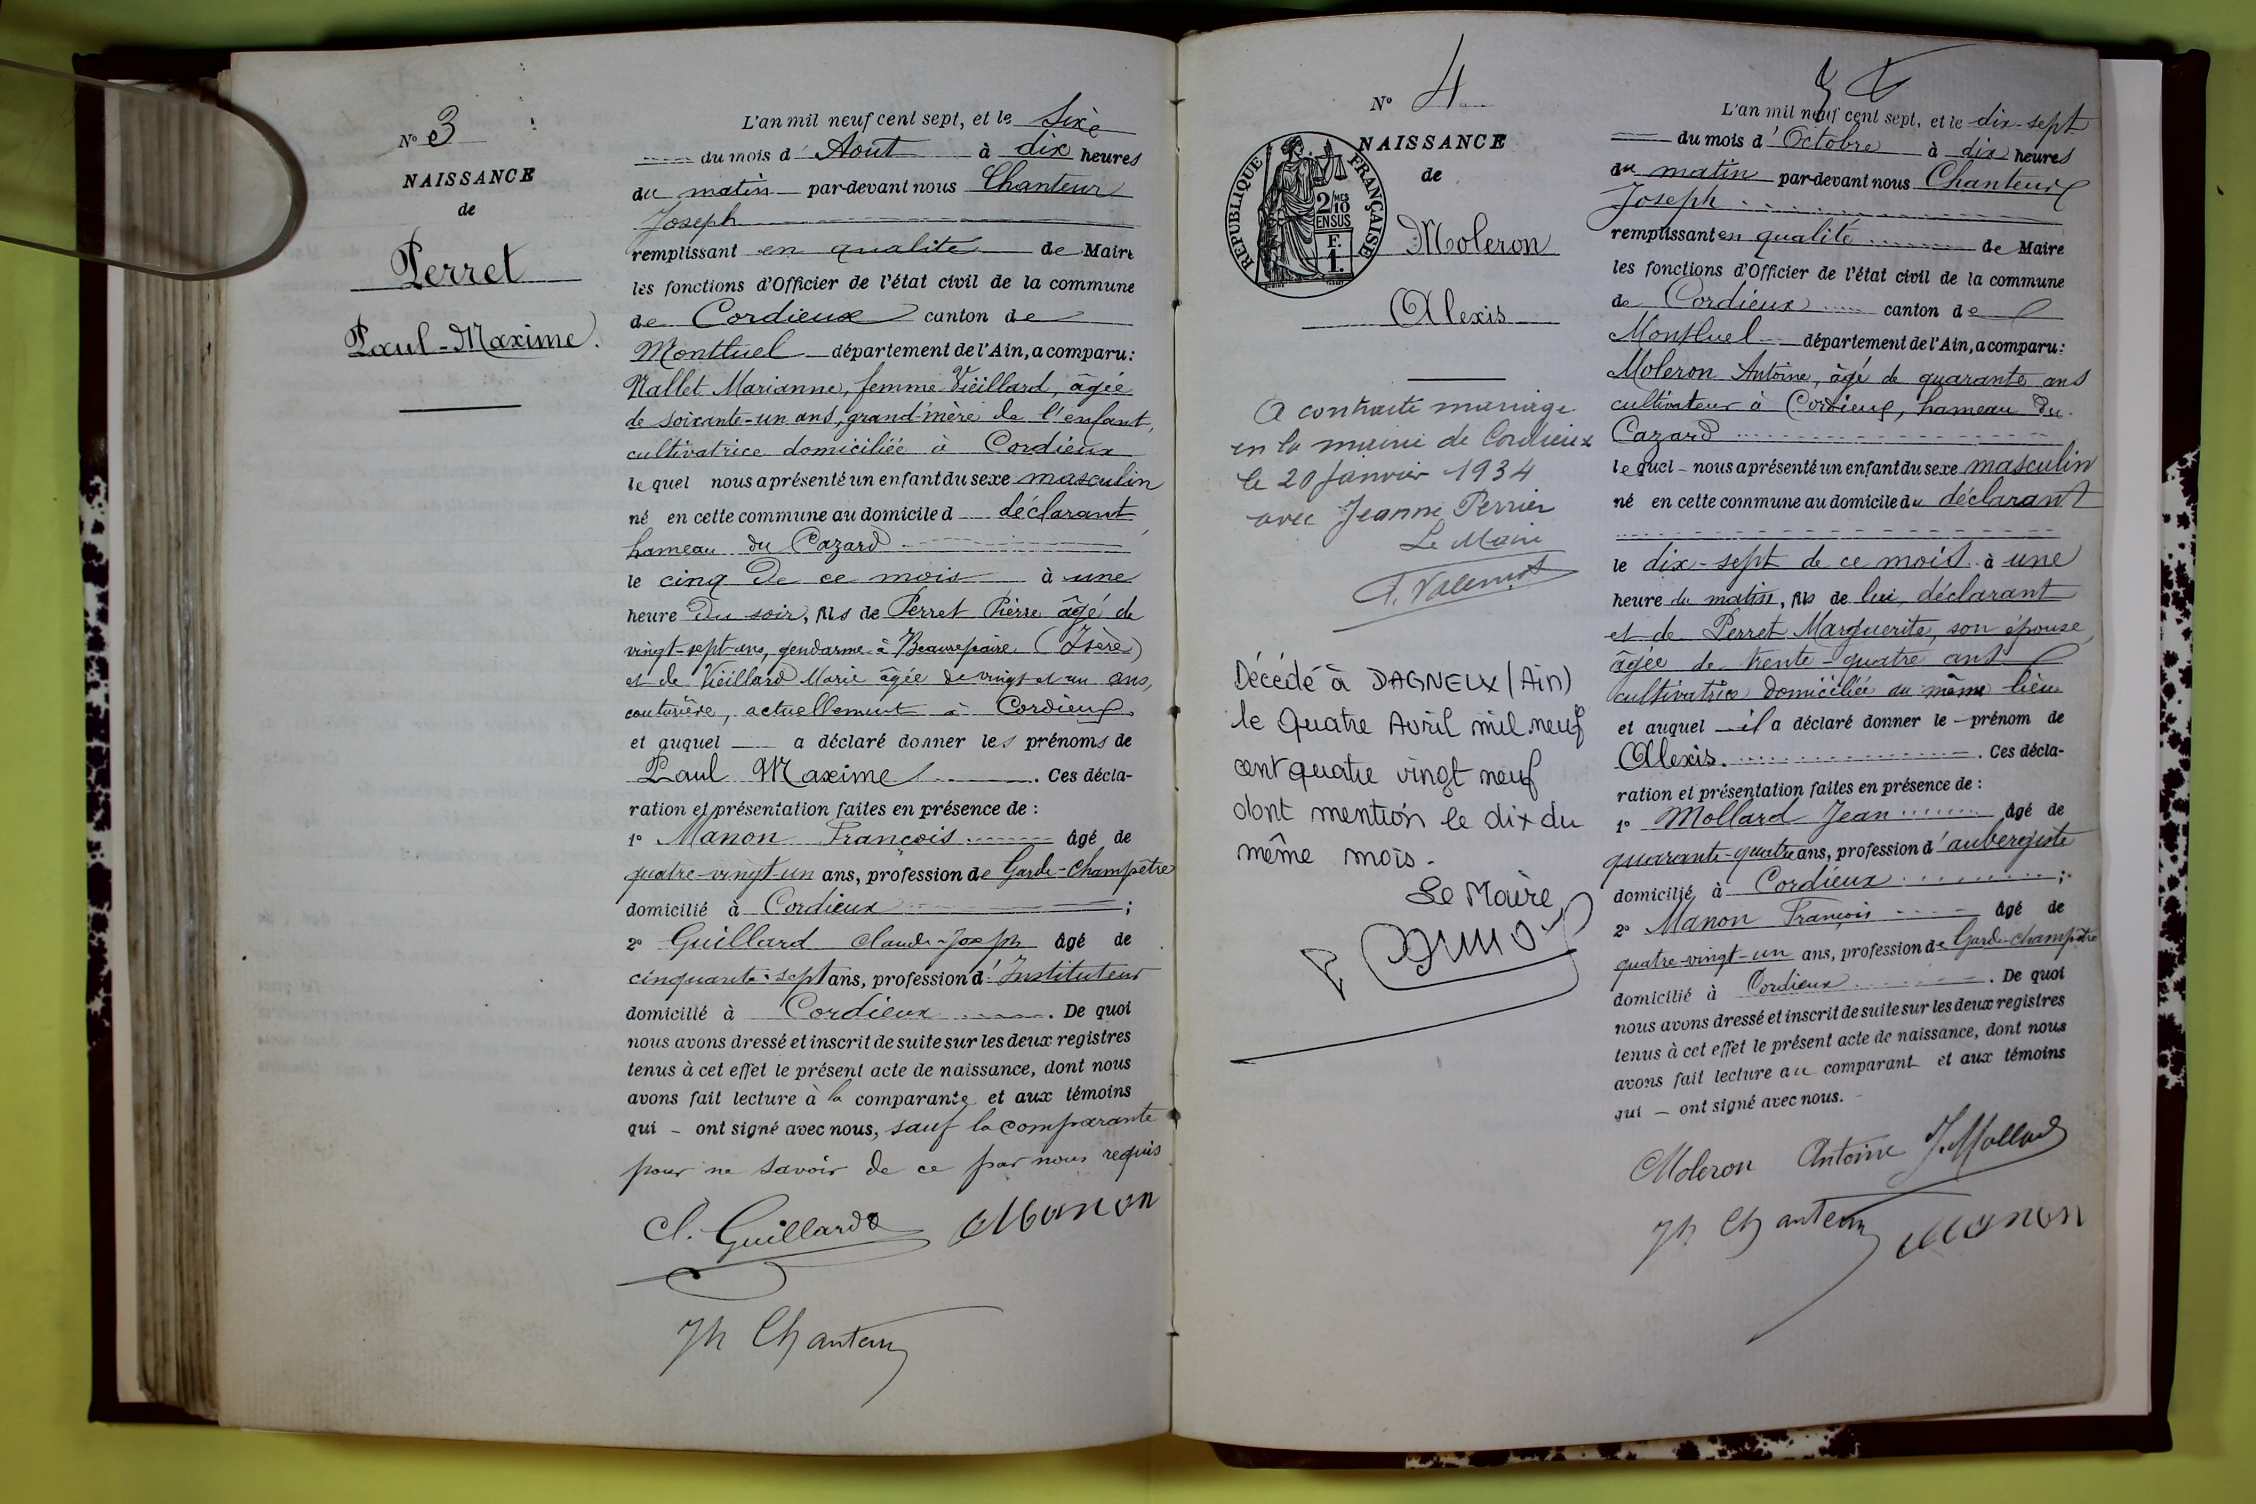 N° 3
NAISSANCE
de
Perret
Paul-Maxime.
L'an mil neuf cent sept, et le Six
du mois d'Août à dix heures
du matin par-devant nous Chanteur
Joseph
remplissant en qualité de Maire
les fonctions d'Officier de l'état civil de la commune
de Cordieux canton de
Montluel département de l'Ain, a comparu:
Nallet Marianne, femme Vieillard, âgée
de soixante-un ans, grand'mère de l'enfant,
cultivatrice domiciliée à Cordieux
lequel nous a présenté un enfant du sexe masculin
né en cette commune au domicile d déclarant,
hameau du Cazard
le cinq de ce mois à une
heure du soir, fils de Perret Pierre âgé de
vingt-sept ans, gendarme à Beaurepaire (Isère)
et de Vieillard Marie âgée de vingt et un ans,
couturière, actuellement à Cordieux
et auquel a déclaré donner les prénoms de
Paul Maxime. Ces décla-
ration et présentation faites en présence de :
1° Manon François âgé de
quatre-vingt-un ans, profession de Garde-Champêtre
domicilié à Cordieux ;
2° Guillard Claude-Joseph âgé de
cinquante-sept ans, profession d'Instituteur
domicilié à Cordieux. De quoi
nous avons dressé et inscrit de suite sur les deux registres
tenus à cet effet le présent acte de naissance, dont nous
avons fait lecture à la comparante et aux témoins
qui - ont signé avec nous, sauf la comparante
pour ne savoir de ce par nous requis
Cl. Guillard Manon
Jh Chanteur
N° 4
NAISSANCE
de
REPUBLIQUE FRANÇAISE
2/10 MES
EN SUS
F.
1.
Moleron
Alexis
A contracté mariage
en la mairie de Cordieux
le 20 Janvier 1934
avec Jeanne Perrier
Le Maire
Décédé à DAGNEUX (Ain)
le Quatre Avril mil neuf
cent quatre vingt neuf
dont mention le dix du
même mois.
Le Maire
L'an mil neuf cent sept, et le dix-sept
du mois d'Octobre à dix heures
du matin par-devant nous Chanteur
Joseph
remplissant en qualité de Maire
les fonctions d'Officier de l'état civil de la commune
de Cordieux canton de
Montluel département de l'Ain, a comparu :
Moleron Antoine, âgé de quarante ans
cultivateur à Cordieux, hameau du
Cazard
lequel - nous a présenté un enfant du sexe masculin
né en cette commune au domicile du déclarant
le dix-sept de ce mois à une
heure du matin, fils de lui, déclarant
et de Perret Marguerite, son épouse,
âgée de trente-quatre ans
cultivatrice domiciliée au même lieu
et auquel il a déclaré donner le prénom de
Alexis. Ces décla-
ration et présentation faites en présence de :
1° Mollard Jean âgé de
quarante-quatre ans, profession d'aubergiste
domicilié à Cordieux ;
2° Manon François âgé de
quatre-vingt-un ans, profession de Garde-champêtre
domicilié à Cordieux. De quoi
nous avons dressé et inscrit de suite sur les deux registres
tenus à cet effet le présent acte de naissance, dont nous
avons fait lecture au comparant et aux témoins
qui - ont signé avec nous.
Moleron Antoine J. Mollard
Jh Chanteur Manon